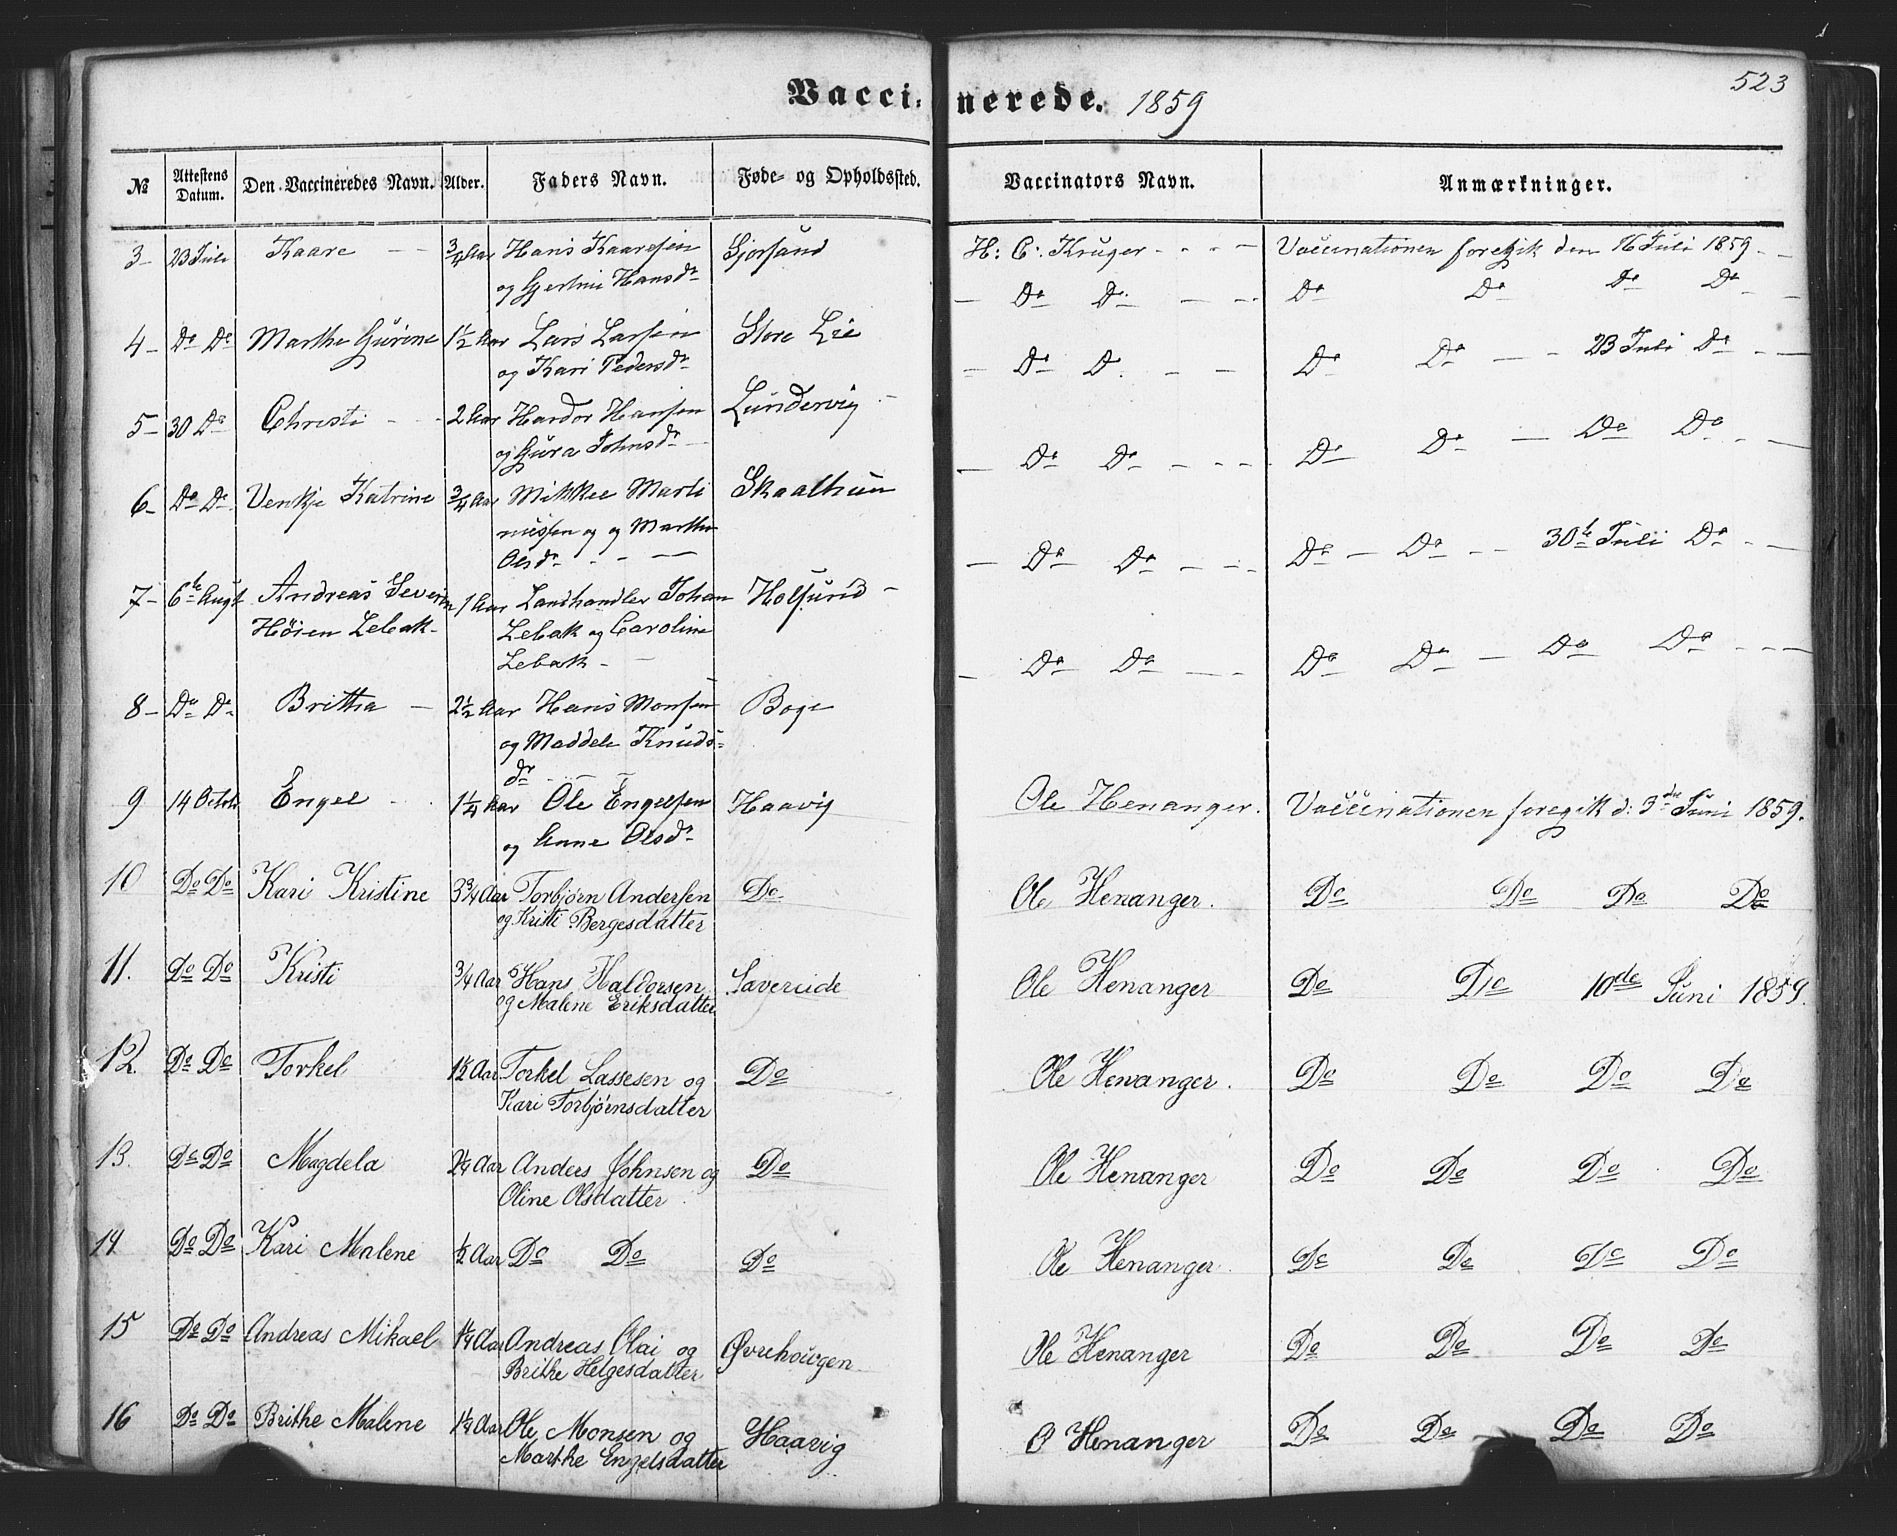 523
Vaccinerede. 1859
№ Attestens Datum. Den Vaccineredes Navn. Alder. Faders Navn. Føde- og Opholdssted. Vaccinators Navn. Anmærkninger.
3 - 23 Juli Kaare - - 3/4 Aar Hans Kaaresen Gjørsund H: C: Krüger - - - - Vaccinationen foregik den 16 Juli 1859 - -
og Gjertine Hansdr - Do Do - - - Do Do Do Do - -
4 - Do Do Marthe Gurine 1 1/2 Aar Lars Larsen Store Lie
og Kari Pedersdr - Do Do - - Do Do - - 23 Juli Do - - -
5 - 30 Do Christi - - - 2 Aar Hardor Hansen Lundervig -
og Gura Johnsdr - - Do Do - - - - Do Do - Do Do - - -
6 - Do Do Venkje Katrine 3/4 Aar Mikkel Marti Skaalhun
niussen og og Marthe
Olsdr - - - - Do Do - - - Do - Do - - 30te Juli Do - - -
7 - 6te Augt Andreas Severin 1 Aar Landhandler Johan Holsund -
Høien Lebak - Lebak og Caroline
Lebak - - - Do Do - - - Do Do - Do Do - - -
8 - Do Do Britha - 2 1/2 Aar Hans Monsen Boge
og Maddele Knuds-
dr - - -
9 14 Octob Engel - 1 1/4 Aar Ole Engelsen Haavig Ole Henanger. Vaccinationen foregik d: 3die Juni 1859.
og Anne Olsdr
10 Do Do Kari Kristine 3 3/4 Aar Torbjørn Andersen Do Ole Henanger. Do Do Do Do
og Kristi Bergesdatter
11. Do Do Kristi 3/4 Aar Hans Haldorsen Ole Henanger Do Do 10de Juni 1859.
og Malene Eriksdatter
12. Do Do Torkel 1 1/2 Aar Torkel Lassesen og Do Ole Henanger. Do Do Do Do
Kari Torbjørnsdatter
13. Do Do Magdela 2 1/4 Aar Anders Johnsen og Do Ole Henanger Do Do Do Do
Oline Olsdatter
14 Do Do Kari Malene 1/2 Aar Do Do Do Ole Henanger. Do Do Do Do
15 Do Do Andreas Mikael 1 1/4 Aar Andreas Olai og Øvrehougen Ole Henanger Do Do Do Do
Brithe Helgesdatter
16 Do Do Brithe Malene 1 1/4 Aar Ole Monsen og Haavig O Henanger Do Do Do Do
Marthe Engelsdatter